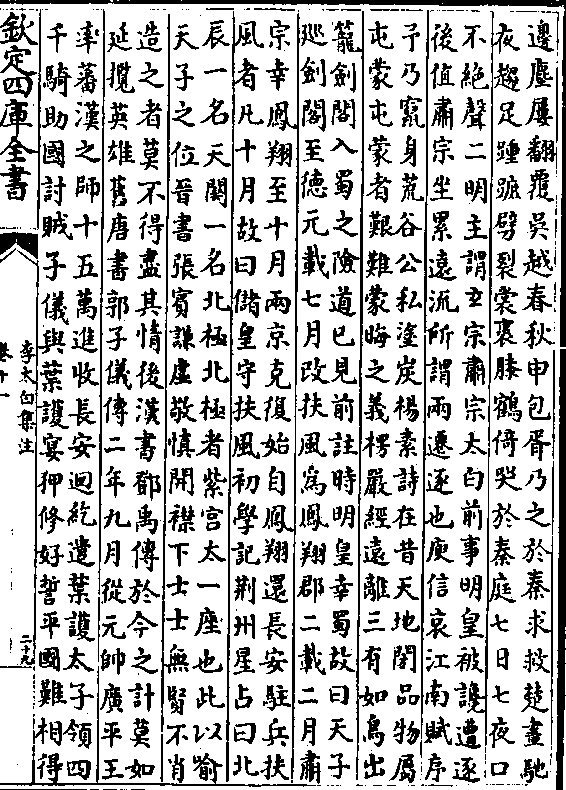 邊塵屢翻覆吳越春秋申包胥乃之於秦求救楚晝馳
夜趨足踵蹠劈裂裳裹膝鶴倚哭於秦庭七日七夜口
不絕聲二明主謂玄宗肅宗太白前事明皇被讒遭逐
後值肅宗坐累遠流所謂兩遷逐也庾信哀江南賦序
予乃竄身荒谷公私塗炭楊素詩在昔天地閉品物屬
屯蒙屯蒙者艱難蒙晦之義楞嚴經遠離三有如鳥出
籠劍閣入蜀之險道已見前註時明皇幸蜀故曰天子
廵劍閣至德元載七月改扶風為鳳翔郡二載二月肅
宗幸鳳翔至十月兩京克復始自鳳翔還長安駐兵扶
風者凡十月故曰儲皇守扶風初學記荆州星占曰北
辰一名天關一名北極北極者紫宮太一座也此以喻
天子之位晉書張賓謙虛敬慎開襟下士士無賢不肖
造之者莫不得盡其情後漢書鄧禹傳於今之計莫如
延攬英雄舊唐書郭子儀傳二年九月從元帥廣平王
率蕃漢之師十五萬進收長安迴紇遣葉護太子領四
千騎助國討賊子儀與葉護宴狎修好誓平國難相得
欽定四庫全書
李太白集注
卷十一
二十九